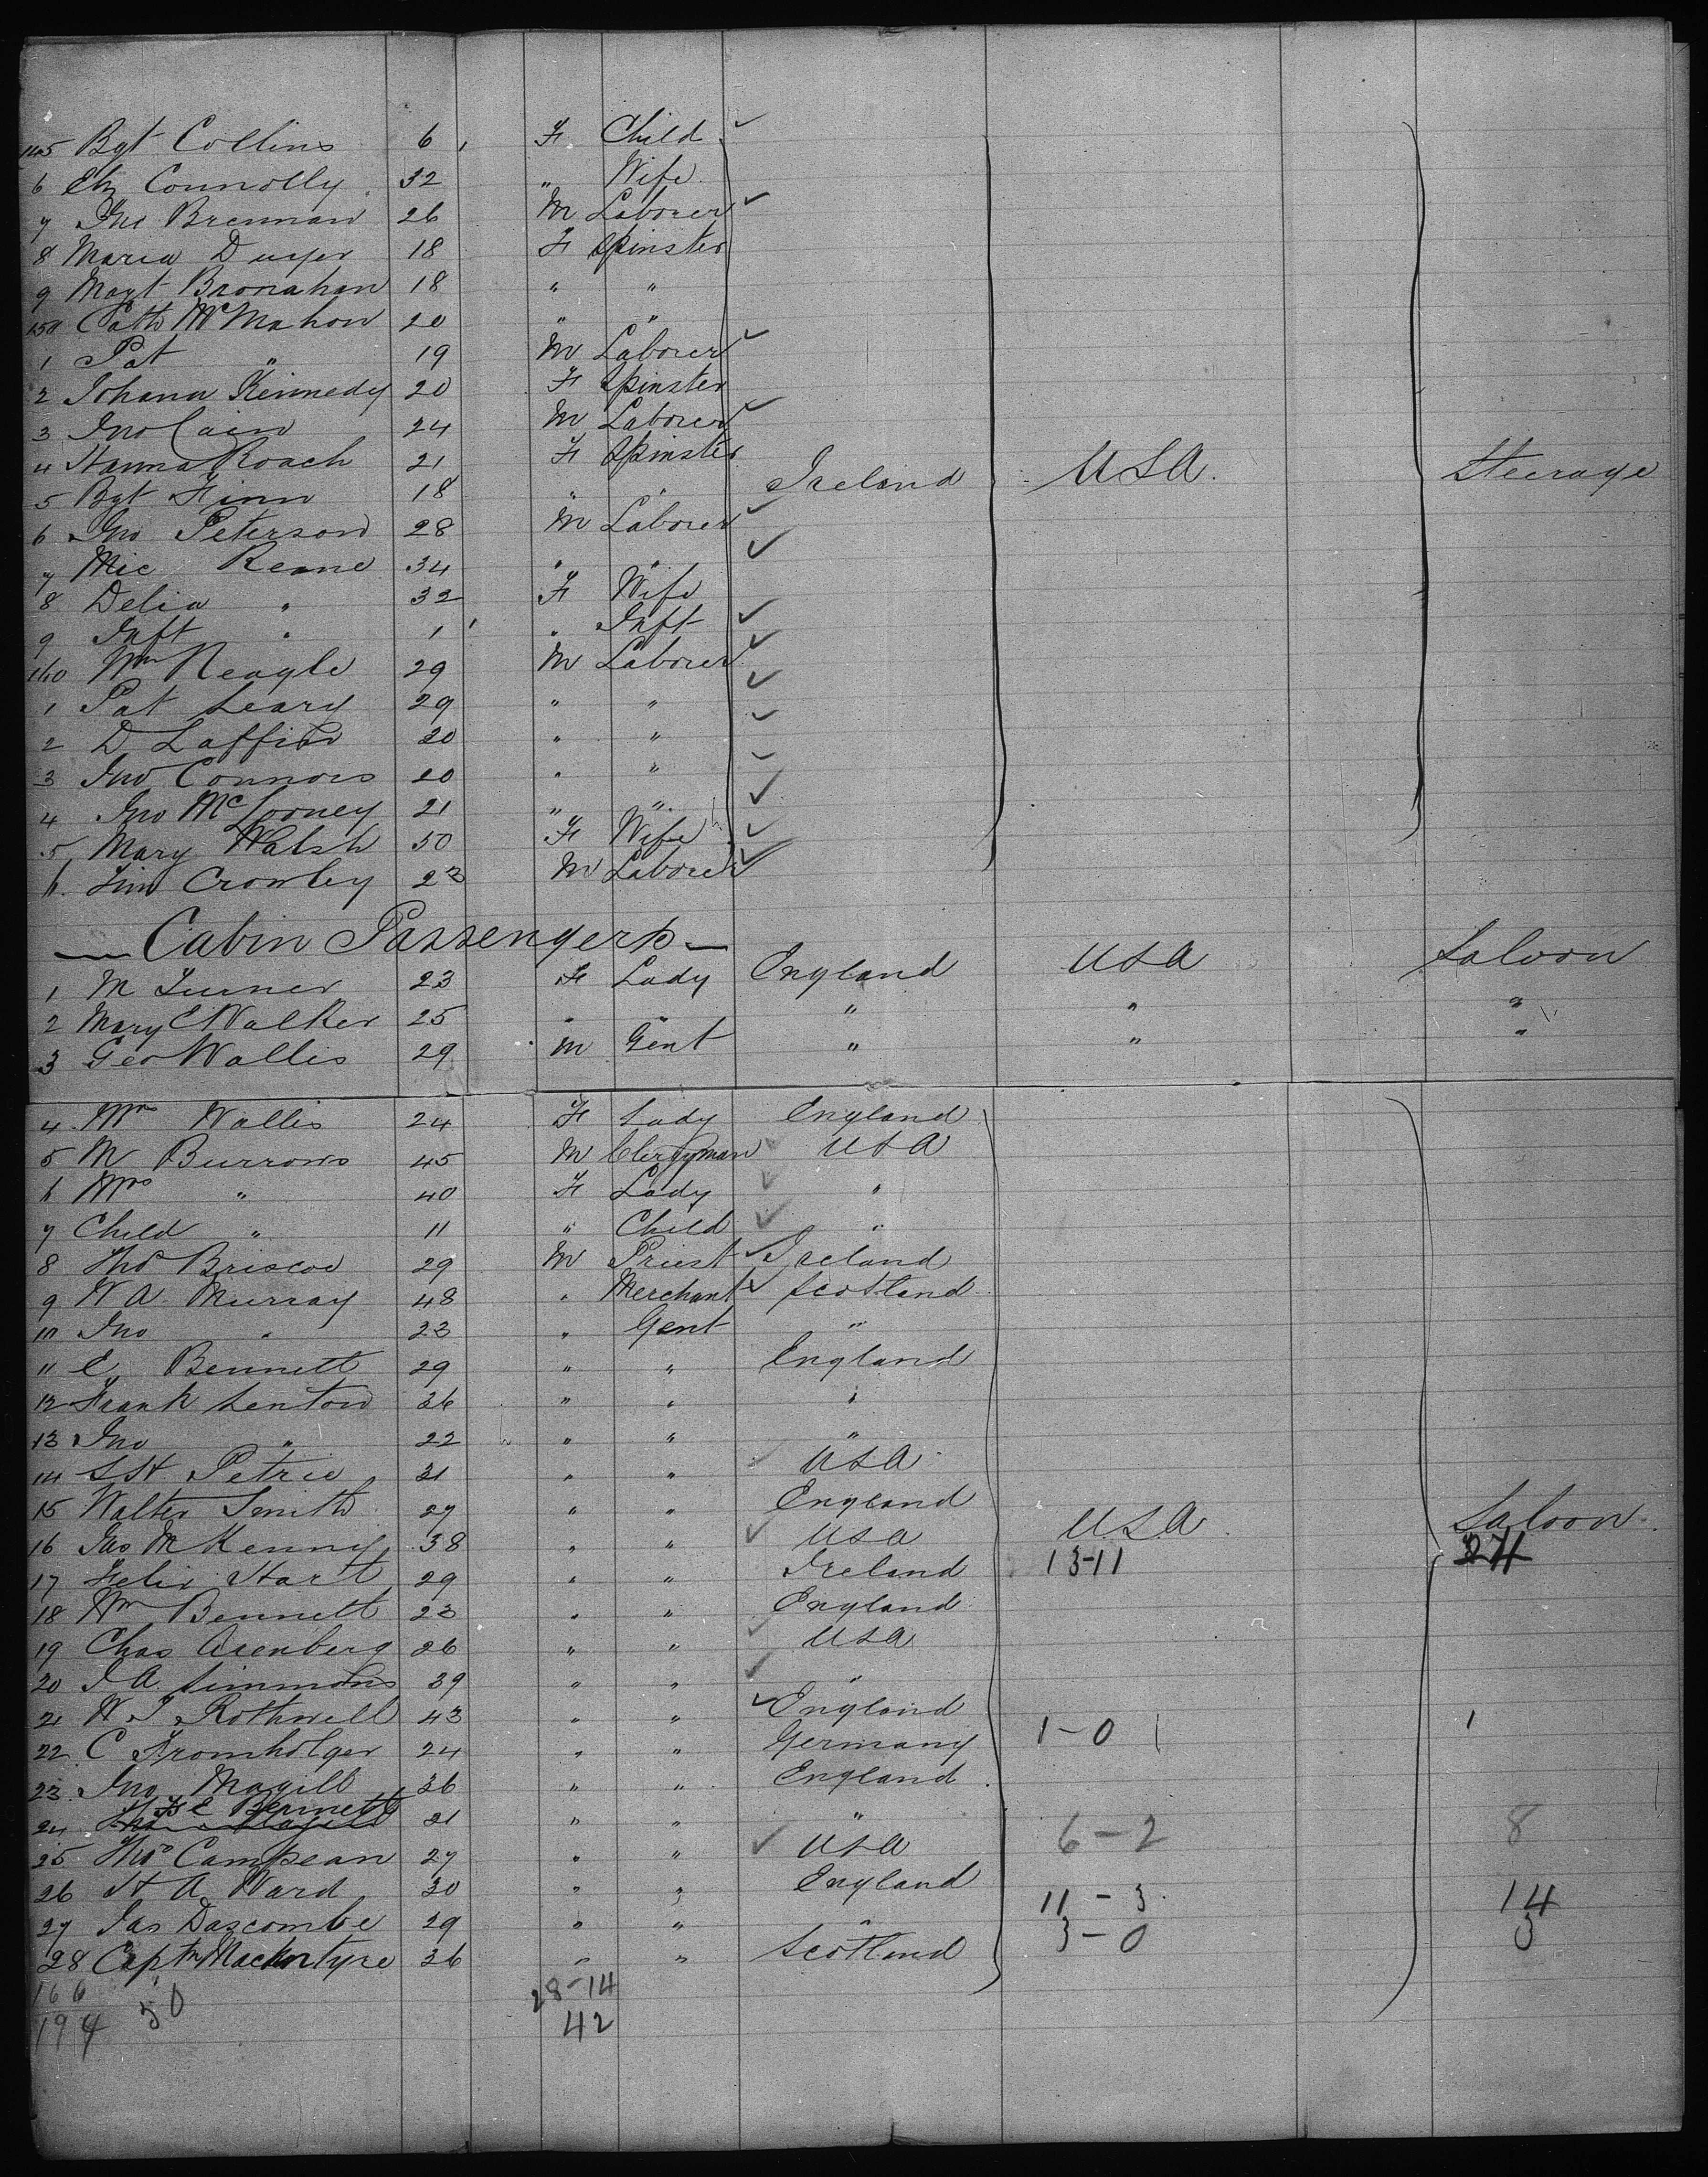 145 Bgt Collins 6 F Child
6 Eliz Connolly 32 " Wife
7 Jno Brennan 26 M Laborer
8 Maria Dwyer 18 F Spinster
9 Magt Bronahan 18 " "
150 Cath McMahon 20 " "
1 Pat " 19 M Laborer
2 Johana Kennedy 20 F Spinster
3 Jno Cain 24 M Laborer
4 Hanna Roach 21 F Spinster
5 Bgt Finn 18 " " Ireland USA. Steerage
6 Jno Peterson 28 M Laborer
7 Mic Reane 34 " "
8 Delia " 32 F Wife
9 Inft " 1 " Inft
160 Wm Neagle 29 M Laborer
1 Pat Leary 29 " "
2 D Laffin 20 " "
3 Jno Connors 20 " "
4 Jno McLooney 21 " "
5 Mary Walsh 50 F Wife
6 Tim Crowley 23 M Laborer
Cabin Passengers
1 M Turner 23 F Lady England USA Saloon
2 Mary E Walker 25 " " " " "
3 Geo Wallis 29 M Gent " " "
4 Mrs Wallis 24 F Lady England
5 M Burrows 45 M Clergyman USA
6 Mrs " 40 F Lady "
7 Child " 11 " Child "
8 Thos Briscoe 29 M Priest Ireland
9 W A Murray 48 " Merchant Scotland
10 Jno " 23 " Gent "
11 E Bennett 29 " " England
12 Frank Lenton 36 " " "
13 Jno " 22 " " "
14 S H Petrie 31 " " USA
15 Walter Smith 27 " " England
16 Jas McKenny 38 " " USA USA Saloon
17 Felix Hart 29 " " Ireland 13-11 24
18 Wm Bennett 23 " " England
19 Chas Arenberg 26 " " USA
20 J A Simmons 39 " " "
21 W J Rothwell 43 " " England
22 C Fromholger 24 " " Germany 1-0 1
23 Jno Magill 36 " " England
24 E Bennett 21 " " " 6-2 8
25 Thos Campean 27 " " USA
26 H A Ward 30 " " England 11-3 14
27 Jas Dascombe 29 " " " 3-0 3
28 Captn MacIntyre 36 " " Scotland
166 28-14
194 30 42